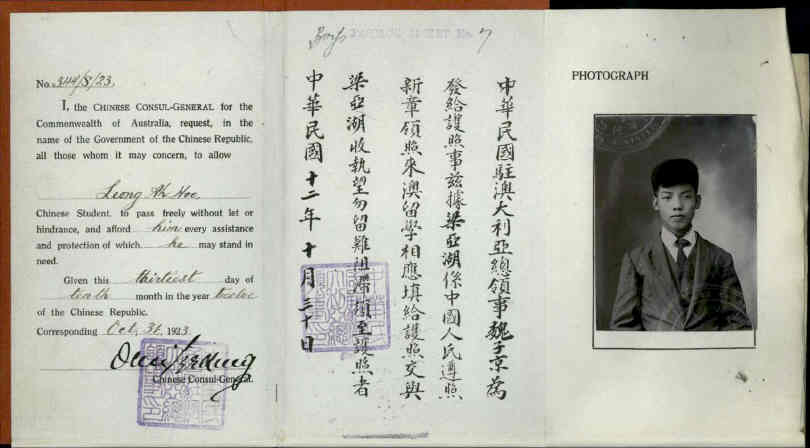 No. 344/S/23.
I, the CHINESE CONSUL-GENERAL for the
Commonwealth of Australia, request, in the
name of the Government of the Chinese Republic,
all those whom it may concern, to allow
Leong Ah Hoo
Chinese Student, to pass freely without let or
hindrance, and afford him every assistance
and protection of which he may stand in
need.
Given this thirtiest day of
tenth month in the year twelve
of the Chinese Republic.
Corresponding Oct. 31. 1923
Chinese Consul-General.
7
中華民國駐澳大利亞總領事魏子京為
發給護照事茲據梁亞湖係中國人民遵照
新章領照來澳留學相應填給護照交與
梁亞湖收執望勿留難阻滯須至護照者
中華民國十二年十月三十日
PHOTOGRAPH